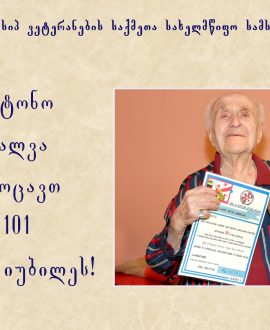 სიპ ვეტერანების საქმეთა სახელმწიფო სამს
ტონო
ალვა
ოცავთ
101
იუბილეს!